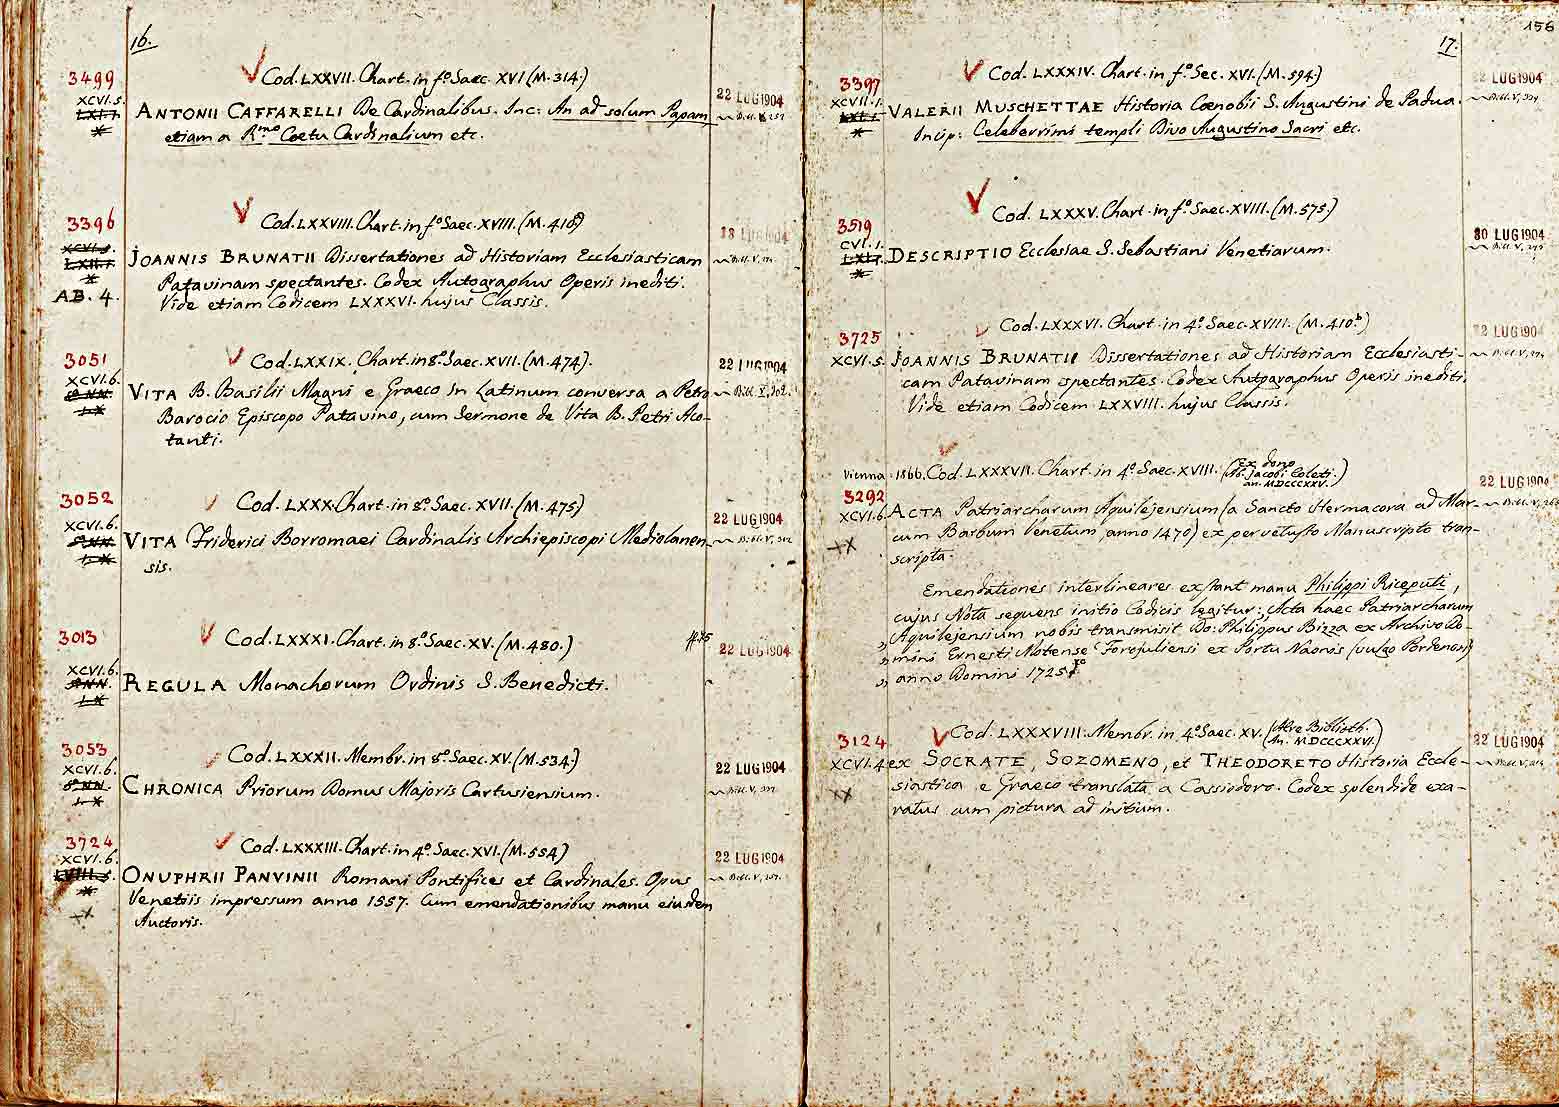 16.
3499
Cod. LXXVII. Chart. in fº. Saec. XVI (M. 314.)
22 LUG 1904
XCVI. 5.
ANTONII CAFFARELLI De Cardinalibus. Inc: An ad solum Papam
etiam a Rmo. Coetu Cardinalium etc.
3396
Cod. LXXVIII. Chart. in fº. Saec. XVIII. (M. 410ª)
LUG 1904
JOANNIS BRUNATII Dissertationes ad Historiam Ecclesiasticam
Patavinam spectantes. Codex Autographus Operis inediti.
AB. 4.
Vide etiam Codicem LXXXVI. hujus Classis.
3051
Cod. LXXIX. Chart. in 8º. Saec. XVII. (M. 474).
22 LUG 1904
XCVI. 6.
VITA B. Basilii Magni e Graeco in Latinum conversa a Petro
Barocio Episcopo Patavino, cum Sermone de Vita B. Petri Aco-
tanti.
3052
Cod. LXXX. Chart. in 8º. Saec. XVII. (M. 475)
22 LUG 1904
XCVI. 6.
VITA Friderici Borromaei Cardinalis Archiepiscopi Mediolanen-
sis.
3013
Cod. LXXXI. Chart. in 8º. Saec. XV. (M. 480.)
22 LUG 1904
XCVI. 6.
REGULA Monachorum Ordinis S. Benedicti.
3053
Cod. LXXXII. Membr. in 8º. Saec. XV. (M. 534.)
22 LUG 1904
XCVI. 6.
CHRONICA Priorum Domus Majoris Cartusiensium.
3724
Cod. LXXXIII. Chart. in 4º. Saec. XVI. (M. 554)
22 LUG 1904
XCVI. 6.
ONUPHRII PANVINII Romani Pontifices et Cardinales. Opus
Venetiis impressum anno 1557. Cum emendationibus manu eiusdem
Auctoris.
156
17.
3397
Cod. LXXXIV. Chart. in fº. Sec. XVI. (M. 594.)
22 LUG 1904
XCVII. 1.
VALERII MUSCHETTAE Historia Cœnobii S. Augustini de Padua.
Incip: Celeberrimi templi Divo Augustino Sacri etc.
Cod. LXXXV. Chart. in fº. Saec. XVIII. (M. 575.)
3519
30 LUG 1904
CVI. 1.
DESCRIPTIO Ecclesiae S. Sebastiani Venetiarum.
Cod. LXXXVI. Chart. in 4º. Saec. XVIII. (M. 410.b)
3725
22 LUG 1904
XCVI. 5.
JOANNIS BRUNATII Dissertationes ad Historiam Ecclesiasti-
cam Patavinam spectantes. Codex Autographus Operis inediti.
Vide etiam Codicem LXXVIII. hujus Classis.
Vienna 1866. Cod. LXXXVII. Chart. in 4º. Saec. XVIII. (Ex dono
Ab. Jacobi Coleti.
an. MDCCCXXV.)
3292
22 LUG 1904
XCVI. 6.
ACTA Patriarcharum Aquilejensium (a Sancto Hermacora ad Mar-
cum Barbum Venetum, anno 1470) ex pervetusto Manuscripto tran-
scripta.
Emendationes interlineares exstant manu Philippi Riceputi,
cujus Nota sequens initio Codicis legitur: „Acta haec Patriarcharum
„Aquilejensium nobis transmisit Do: Philippus Bizza ex Archivo Do-
„mini Ernesti Notense Forojuliensi ex Portu Naonis (vulgo Pordenon)
„ anno Domini 1725.
3124
Cod. LXXXVIII. Membr. in 4º. Saec. XV. (Aere Biblioth.
An. MDCCCXXVI.)
22 LUG 1904
XCVI. 4.
ex SOCRATE, SOZOMENO, et THEODORETO Historia Eccle-
siastica e Graeco translata a Cassiodoro. Codex splendide exa-
ratus cum pictura ad initium.